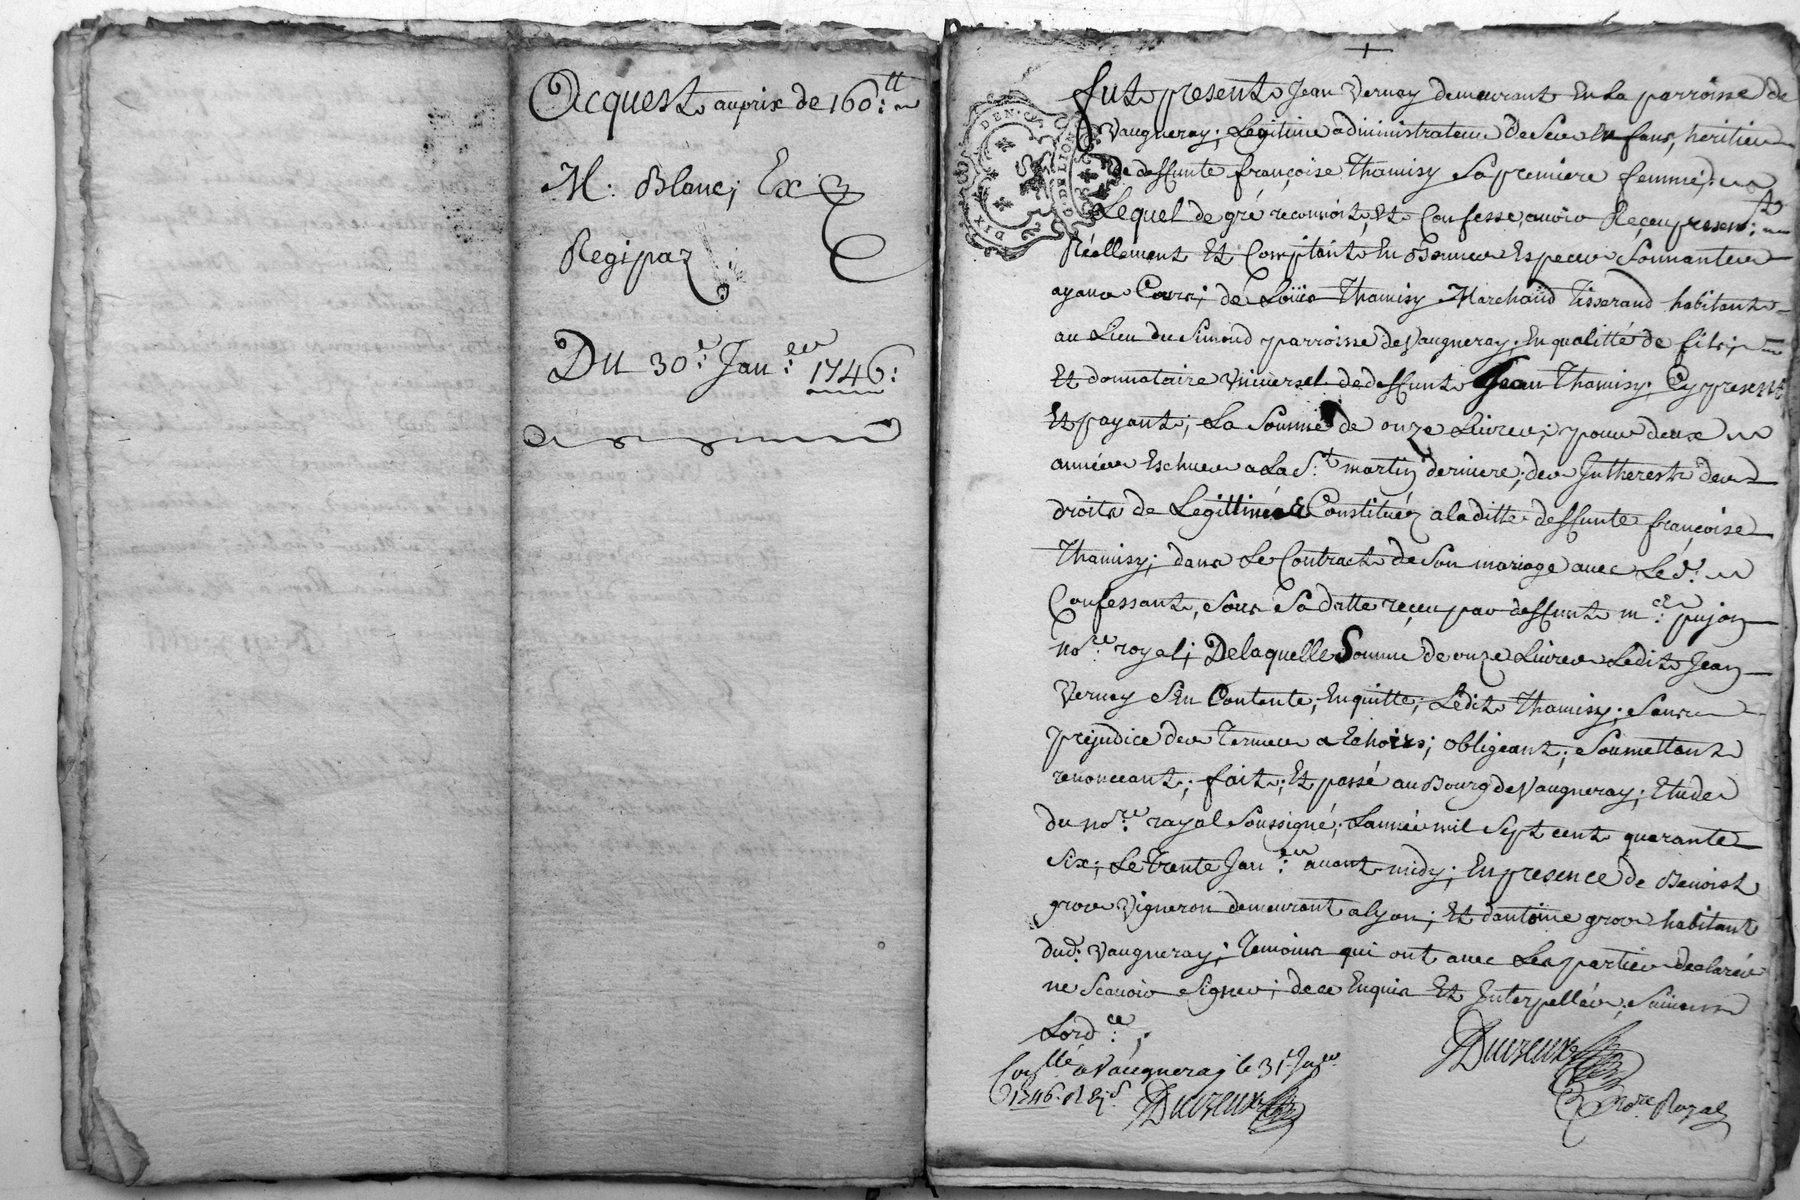 Acquest au prix de 160:tt
M: Blanc; Ex
Regipaz
Du 30e: Jan:er 1746:
Fut present Jean Vernay demeurant En La parroisse de
Vaugneray; Legitime administrateur de Ses Enfans, heritiers
de deffunte françoise Thamisy Sa premiere femme;
Lequel de gré reconnoit, Et Confesse, auoir Reçeu presen:t
Réellement Et Comptant En Bonnes Especes Sonnantes
ayans Cours; de Loüis Thamisy Marchand Tisserand habitant
au Lieu du Simond parroisse de Vaugneray; En qualitté de fils;
Et donnataire Vniversel de deffunt Jean Thamisy; Cy present
Et payant; La Somme de onze Liures; pour deux
années Eschues a La S:t martin derniere; des Jntherests des
droits de Legittime Constitués a laditte deffunte françoise
Thamisy; dans Le Contract de Son mariage auec Le d:
Confessant, Sous Sa datte reçeu par deffunt m:re pujon
no:re royal; De laquelle Somme de onze Liures Ledit Jean
Vernay S'En Contente, En quitte; Ledit Thamisy; Sans
prejudice des Termes a Echoirs; obligeant; Soumettant
renonceant; fait; Et passé au Bourg de Vaugneray; Etude
du no:re royal Soussigné; L'année mil Sept cent quarante
Six; Le Trente Jan:er auant midy; En presence de Benoist
gros Vigneron demeurant a lyon; Et d'antoine gros habitant
dud: Vaugneray; Temoins qui ont auec Les parties declarés
ne Scauoir Signer; de ce Enquis Et Jnterpellés; Suiuant
Lord:ce
Conllé a Vaugneray le 31e Jaer
1746. R
Duvreux
no:re Royal